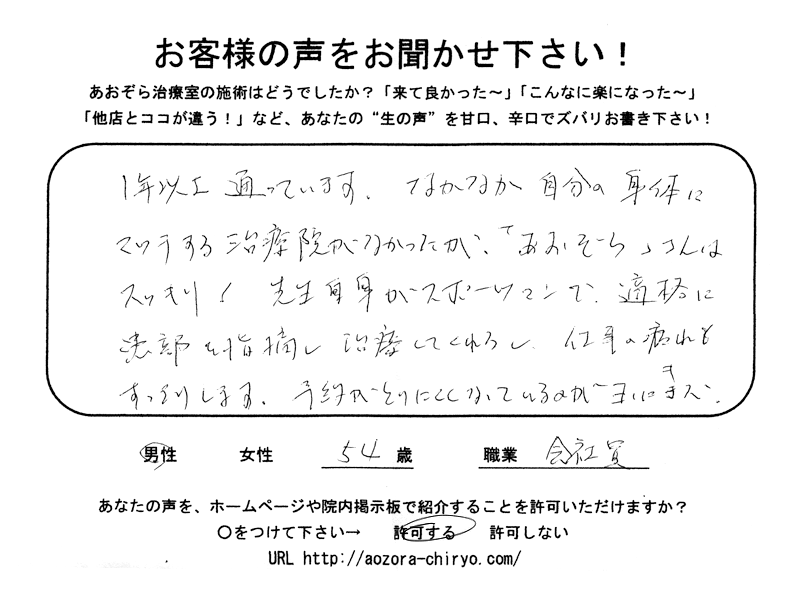 お客様の声をお聞かせ下さい！
あおぞら治療室の施術はどうでしたか？「来て良かった～」「こんなに楽になった～」
「他店とココが違う！」など、あなたの“生の声”を甘口、辛口でズバリお書き下さい！
1年以上通っています。なかなか自分の身体に
マッチする治療院がなかったが、「あおぞら」さんは
スッキリ！先生自身がスポーツマンで、適格に
患部を指摘し治療してくれるし、仕事の疲れも
すっきりします。予約がとりにくくなっているのが玉にキズ。
男性 女性 54歳 職業 会社員
あなたの声を、ホームページや院内掲示板で紹介することを許可いただけますか？
〇をつけて下さい→ 許可する 許可しない
URL http://aozora-chiryo.com/